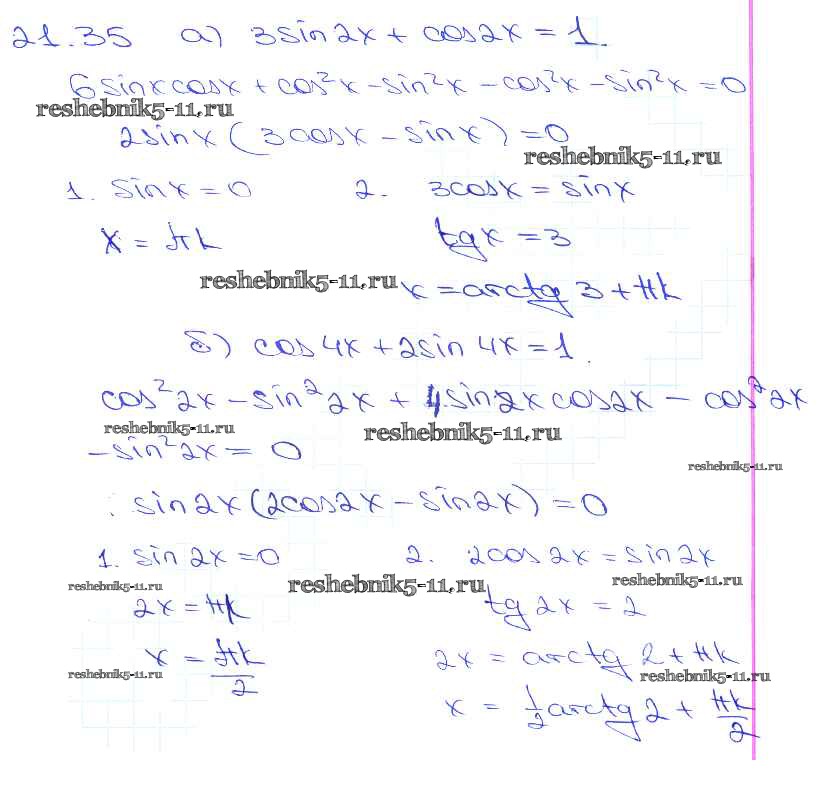 21.35 а) 3sin2x + cos2x = 1.
6sinxcosx + cos²x - sin²x - cos²x - sin²x = 0
reshebnik5-11.ru
2sinx(3cosx - sinx) = 0
reshebnik5-11.ru
1. sinx = 0 2. 3cosx = sinx
x = πk tgx = 3
reshebnik5-11.ru x = arctg 3 + πk
б) cos4x + 2sin4x = 1.
cos²2x - sin²2x + 4sin2x cos2x - cos²2x
reshebnik5-11.ru reshebnik5-11.ru
- sin²2x = 0
reshebnik5-11.ru
sin2x(2cos2x - sin2x) = 0
1. sin2x = 0 2. 2cos2x = sin2x
reshebnik5-11.ru reshebnik5-11.ru reshebnik5-11.ru
2x = πk tg2x = 2
x = πk/2 2x = arctg 2 + πk
reshebnik5-11.ru reshebnik5-11.ru
x = 1/2 arctg 2 + πk/2